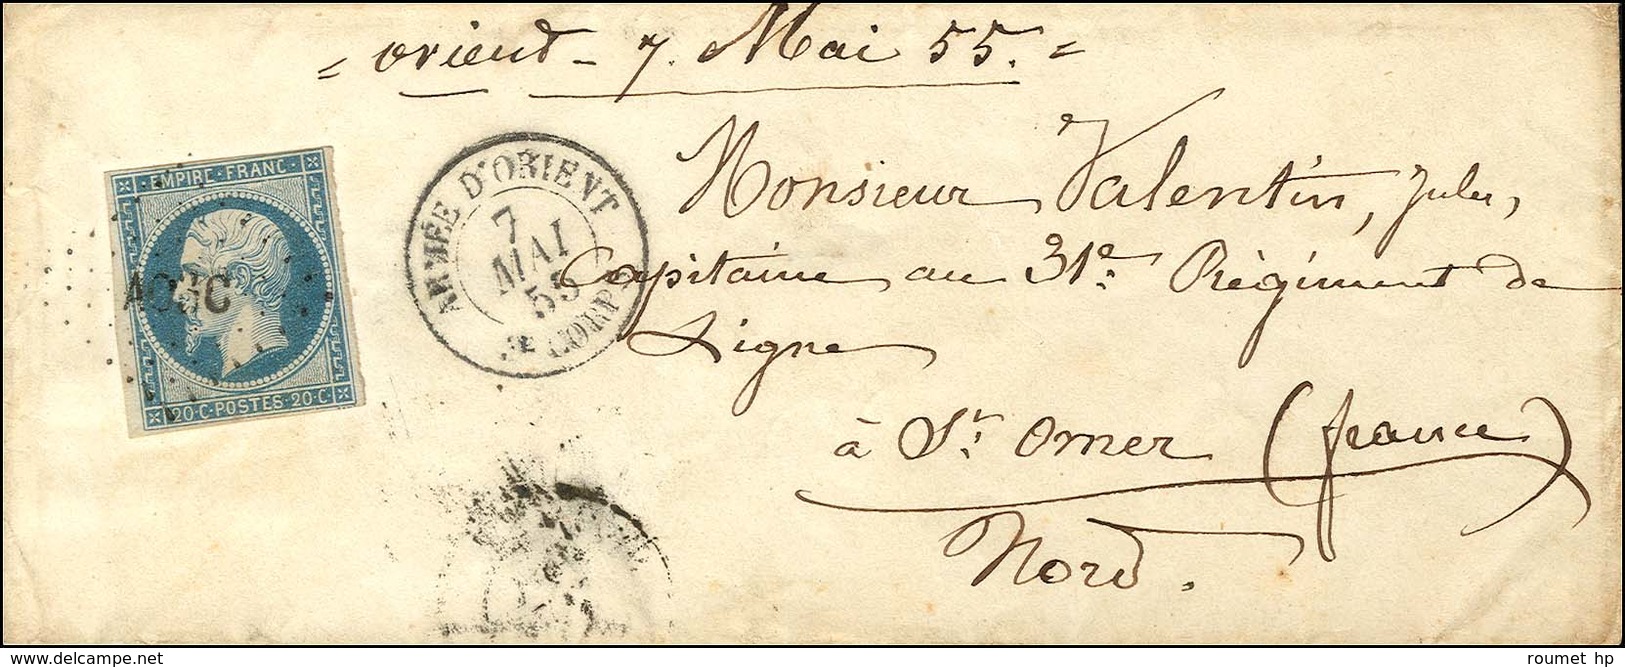 = orient - 7. Mai 55. =
EMPIRE · FRANC ·
20 · C · POSTES · 20 · C ·
ARMÉE D'ORIENT
7
MAI
55
CORPS
Monsieur Valentin, Jules,
Capitaine au 31e Régiment de
Ligne
à St. Omer (france)
Nord.
© delcampe.net
roumet_hp